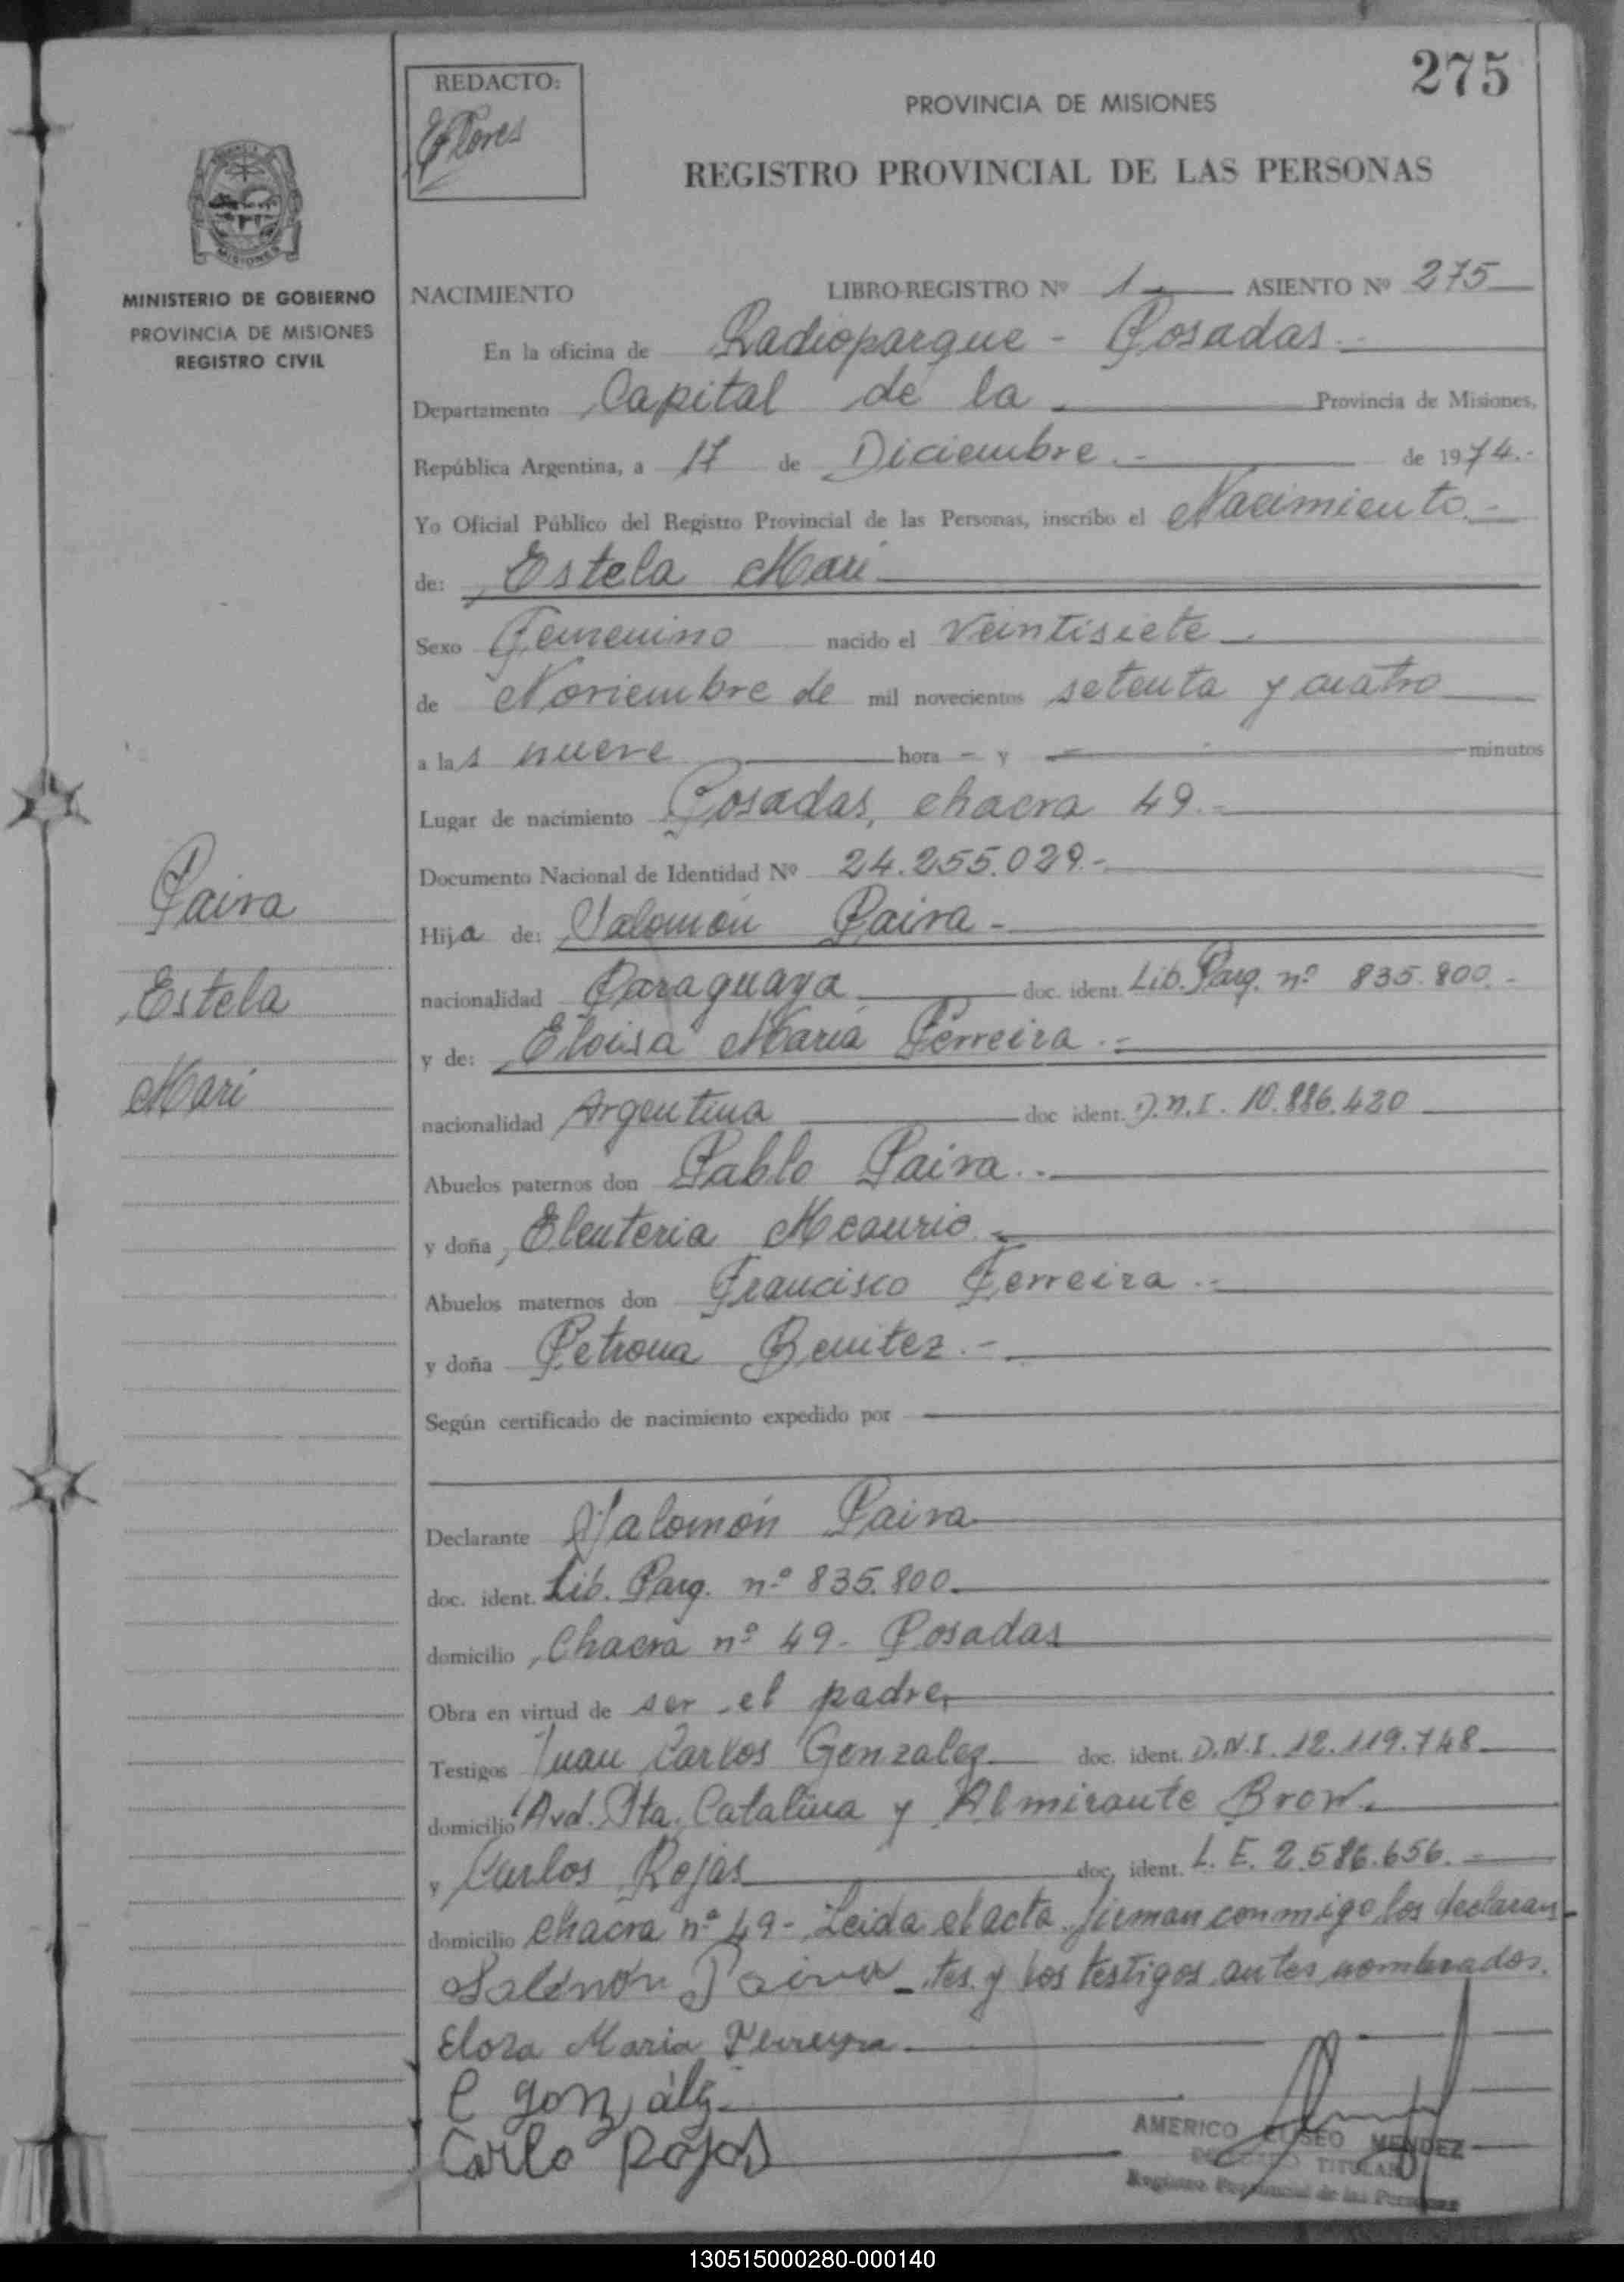 275
REDACTO:
Flores
PROVINCIA DE MISIONES
REGISTRO PROVINCIAL DE LAS PERSONAS
MISIONES
MINISTERIO DE GOBIERNO
PROVINCIA DE MISIONES
REGISTRO CIVIL
NACIMIENTO LIBRO-REGISTRO Nº 1 ASIENTO Nº 275
En la oficina de Radioparque - Posadas.-
Departamento Capital de la Provincia de Misiones,
República Argentina, a 17 de Diciembre.- de 1974.-
Yo Oficial Público del Registro Provincial de las Personas, inscribo el Nacimiento.-
de: Estela Mari
Sexo Femenino nacido el Veintisiete
de Noviembre de mil novecientos setenta y cuatro
a las nueve hora - y - minutos
Lugar de nacimiento Posadas, chacra 49.-
Documento Nacional de Identidad Nº 24.255.029.-
Hija de: Salomón Paiva -
nacionalidad Paraguaya doc. ident. Lib. Parg. nº 835.800.-
y de: Eloisa María Ferreira.-
nacionalidad Argentina doc ident. D.N.I. 10.886.420
Abuelos paternos don Pablo Paiva.-
y doña Eleuteria Mcaurio.-
Abuelos maternos don Francisco Ferreira.-
y doña Petrona Benitez.-
Según certificado de nacimiento expedido por
Declarante Salomón Paiva
doc. ident. Lib. Parg. nº 835.800.
domicilio Chacra nº 49- Posadas
Obra en virtud de ser el padre,
Testigos Juan Carlos Gonzalez doc. ident. D.N.I. 12.119.748
domicilio Avd. Sta. Catalina y Almirante Brow.
y Carlos Rojas doc. ident. L.E. 2.586.656.-
domicilio Chacra nº 49- Leida el acta firman conmigo los declaran-
Salomón Paiva - tes y los testigos antes nombrados.
Paiva
Estela
Mari
Eloza Maria Ferreyra
C gonzalez
Carlo Rojas
AMERICO ELISEO MENDEZ
TITULAR
Registro Provincial de las Personas
130515000280-000140